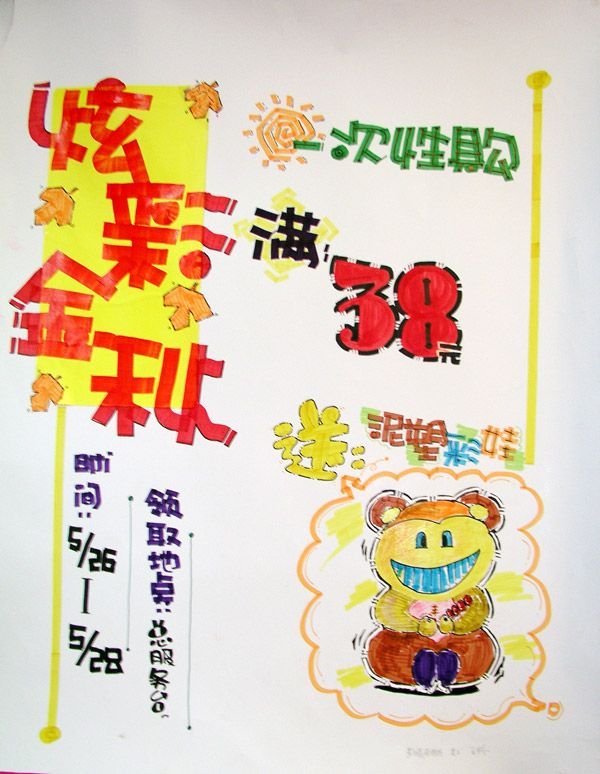 炫彩金秋
一次性购
满:
38元
送:
泥塑彩娃
时间:
5/26
—
5/28
领取地点:总服务台。